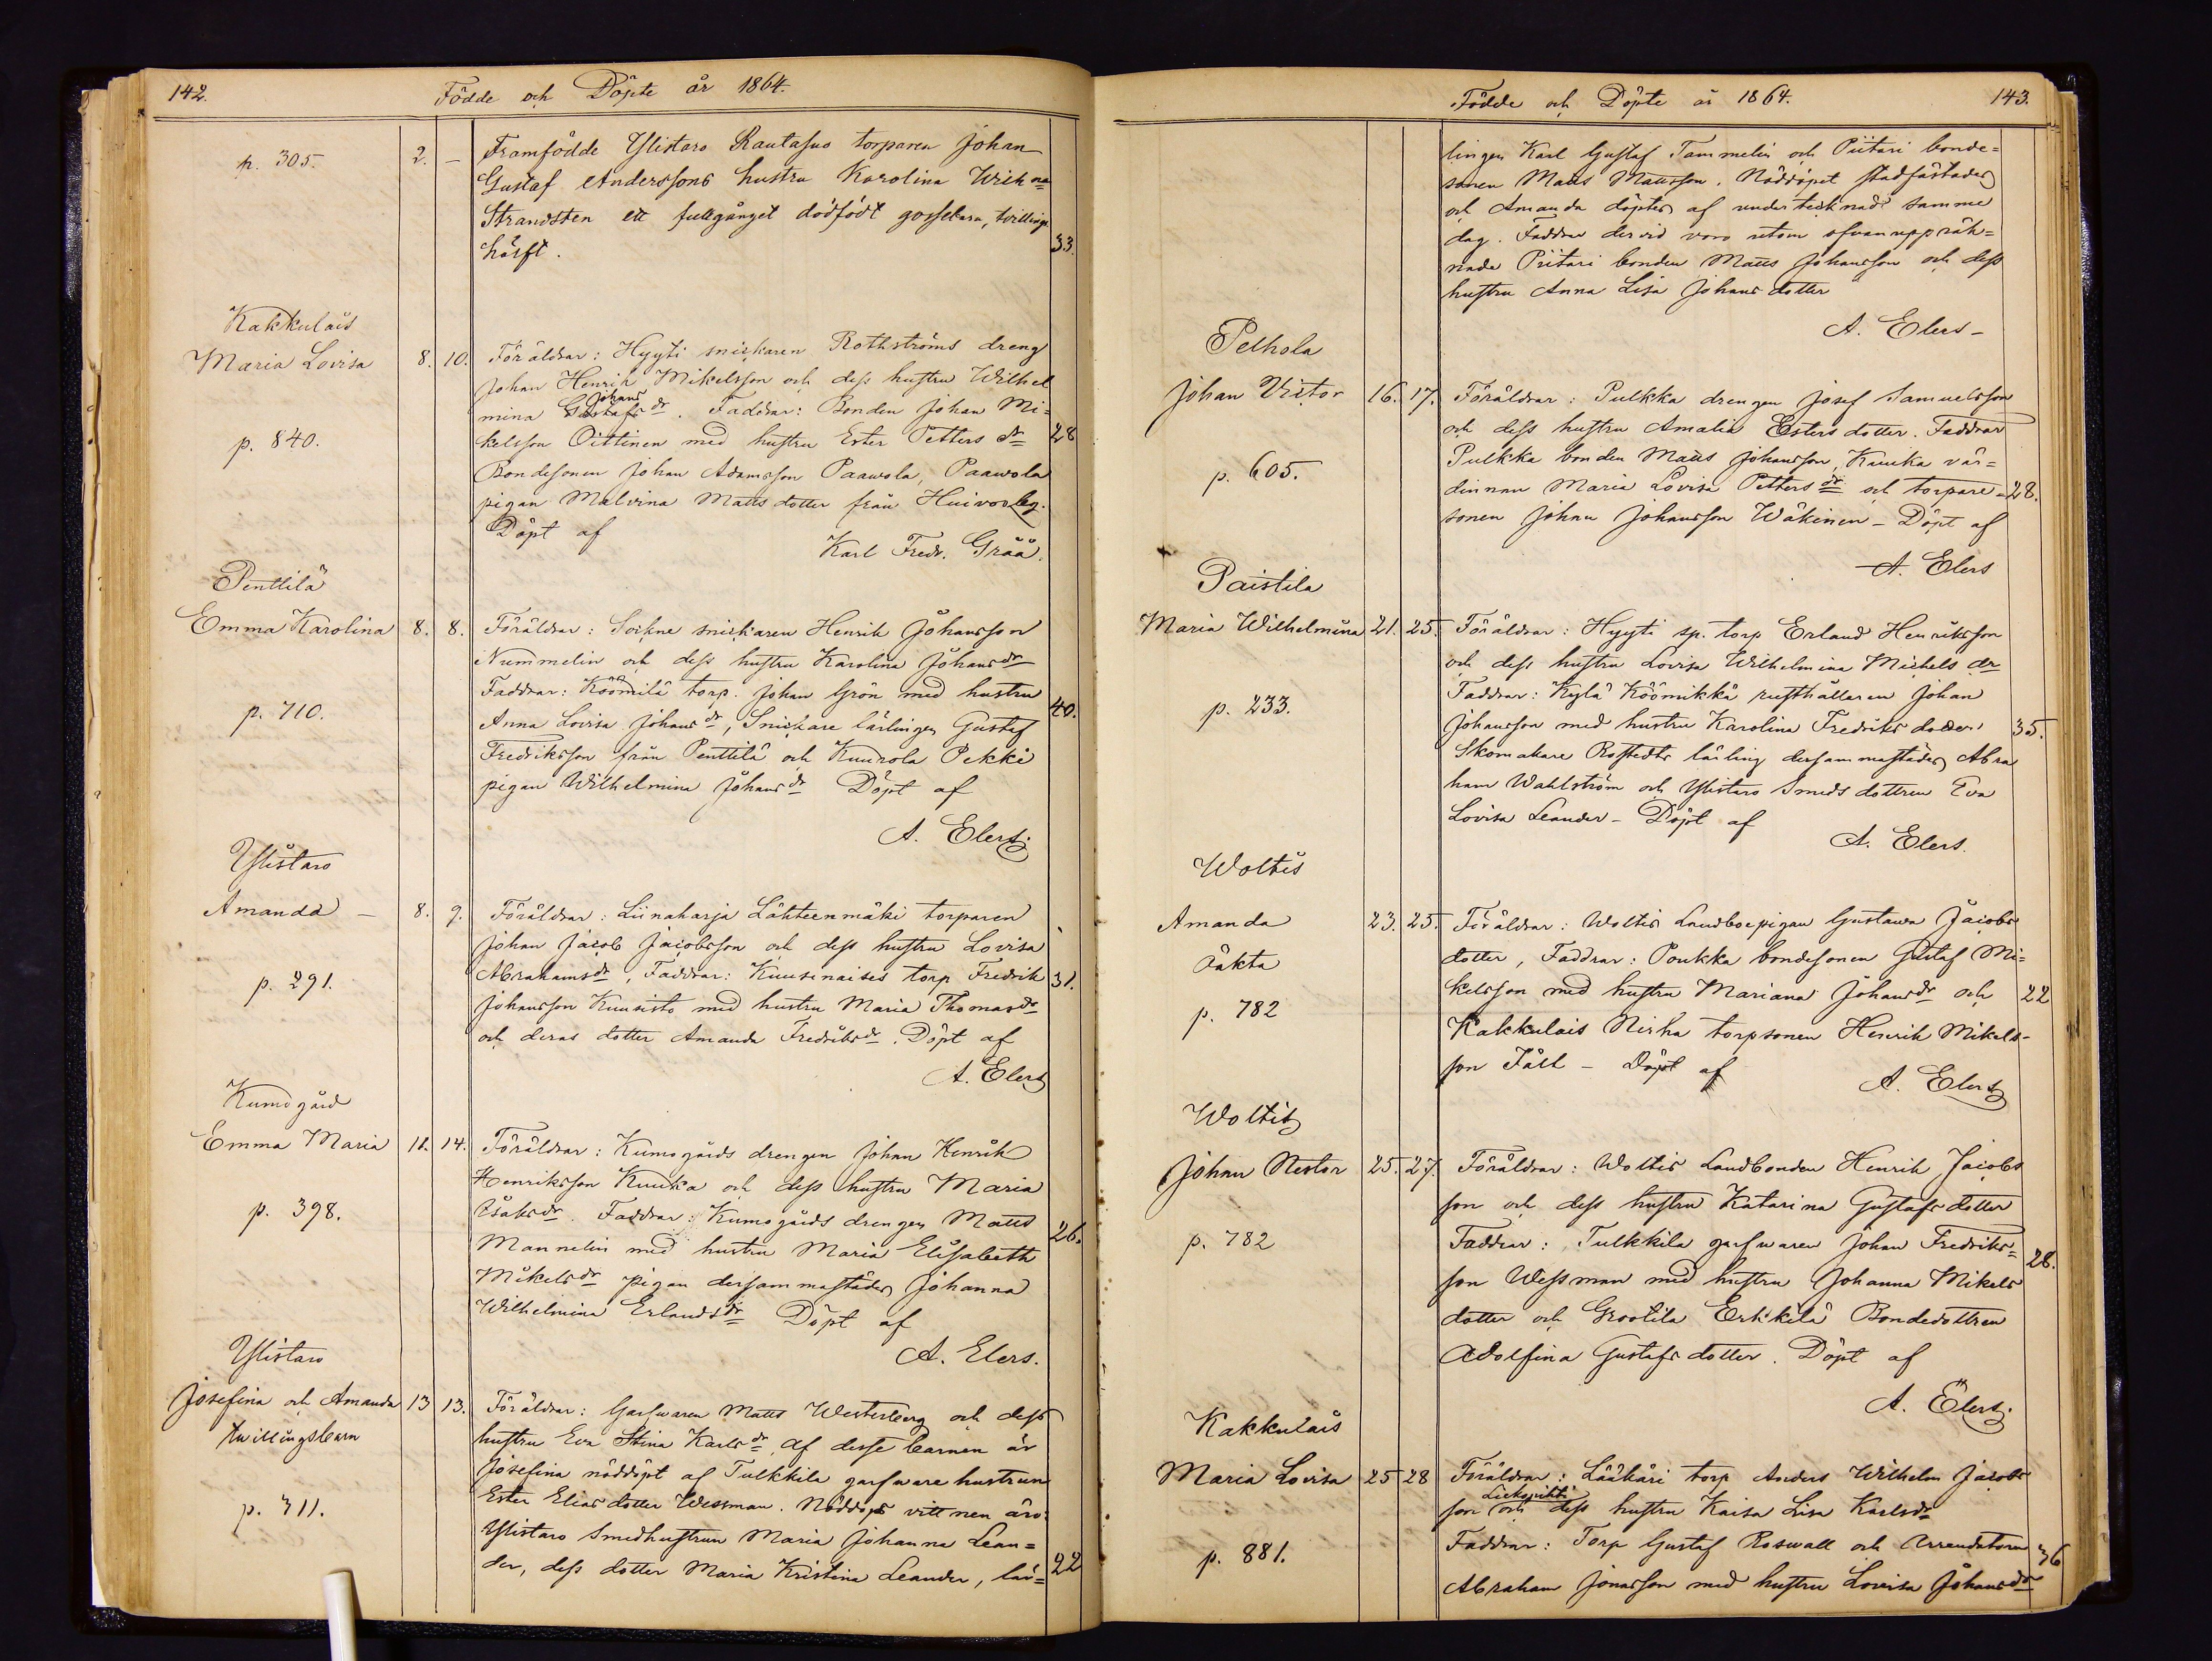 142.
Födde och Döpte år 1864.
p. 305.
2. –
Framfödde Ylistaro Rautasuo torparen Johan
Gustaf Anderssons hustru Karolina Wilh:na
Strandsten ett fullgånget dödfödt gossebarn, tvilling
hälft.
33.
Kakkulais
Maria Lovisa
8. 10.
p. 840.
Föräldrar: Hyyti snickaren Rothströms dreng
Johan Henrik Mikelsson och dess hustru Wilhel
Johans
mina Gustafs dr. Faddrar: Bonden Johan Mi-
kelsson Oittinen med hustru Ester Petters dr
Bondesonen Johan Adamsson Paawola, Paawola
pigan Malvina Matts dotter från Huivoo
Döpt af
Karl Fredr. Grää.
28
Penttilä
Emma Karolina
8. 8.
p. 710.
Föräldrar: Sockne snickaren Henrik Johansson
Nummelin och dess hustru Karolina Johans dr
Faddrar: Köömilä torp. Johan Grön med hustru
Anna Lovisa Johans dr, Snickare lärlingen Gustaf
Fredriksson från Penttilä och Kuurola Pekki
pigan Wilhelmina Johans dr Döpt af
A. Elers.
40.
Ylistaro
Amanda –
8. 9.
p. 291.
Föräldrar: Liinaharja Lähteenmäki torparen
Johan Jacob Jacobsson och dess hustru Lovisa
Abrahams dr, Faddrar: Kuusinaises torp Fredrik
Johansson Kuusisto med hustru Maria Thomas dr
och deras dotter Amanda Fredriks dr. Döpt af
A. Elers
31.
Kumogård
Emma Maria
11. 14.
p. 398.
Föräldrar: Kumogårds drengen Johan Henrik
Henriksson Kuuka och dess hustru Maria
Isaks dr. Faddrar: Kumogårds drengen Matts
Mannelin med hustru Maria Elisabeth
Mikels dr pigan dersammastädes Johanna
Wilhelmina Erlands dr Döpt af
A. Elers.
26.
Ylistaro
Josefina och Amanda
twillingsbarn
13 13.
p. 311.
Föräldrar: Garfvaren Matts Westerberg och dess
hustru Eva Stina Karls dr af desse barnen är
Josefina nöddöpt af Tulkkila garfvare hustrun
Ester Elias dotter Wessman. Nöddops vittnen äro:
Ylistaro Smedhustrun Maria Johanna Lean-
der, dess dotter Maria Kristina Leander, lär-
22
Födde och Döpte år 1864.
143.
lingen Karl Gustaf Tammelin och Piitari bonde-
sonen Matts Mattsson. Nöddöpet stadfästades
och Amanda döptes af undertecknad samme
dag. Faddrar dervid voro utom ofvanuppräk-
nade Piitari bonden Matts Johansson och dess
hustru Anna Lisa Johans dotter
A. Elers –
Pelhola
Johan Victor
16. 17.
p. 605.
Föräldrar: Pulkka drengen Josef Samuelsson
och dess hustru Amalia Esters dotter. Faddrar
Pulkka bonden Matts Johansson, Kuuka vär-
dinnan Maria Lovisa Petters dr och torpare-
sonen Johan Johansson Wäkinen – Döpt af
A. Elers
28.
Paistila
Maria Wilhelmina
21. 25.
p. 233.
Föräldrar: Hyyti sp. torp Erland Henriksson
och dess hustru Lovisa Wilhelmina Michels dr
Faddrar: Kylä Köömikkä rusthållaren Johan
Johansson med hustru Karolina Fredriks dotter,
Skomakare Rostedts lärling dersammastädes Abra
ham Wahlström och Ylistaro Smeds dottren Eva
Lovisa Leander – Döpt af
A. Elers.
35.
Woltis
Amanda
Oäkta
23. 25.
p. 782
Föräldrar: Woltis Landboepigan Gustava Jacobs
dotter, Faddrar: Poukka bondesonen Gustaf Mi-
kelsson med hustru Mariana Johans dr och
Kakkulais Nirha torpsonen Henrik Mikels-
son Fält – Döpt af
A. Elers
22
Woltis
Johan Nestor
25. 27.
p. 782
Föräldrar: Woltis Landbonden Henrik Jacobs
son och dess hustru Katarina Gustafs dotter
Faddrar: Tulkkila garfvaren Johan Fredriks-
son Wessman med hustru Johanna Mikels
dotter och Grootila Erkkilä Bondedottren
Adolfina Gustafs dotter. Döpt af
A. Elers.
28.
Kakkulais
Maria Lovisa
25 28
p. 881.
Föräldrar: Lääkäri torp Anders Wilhelm Jacobs
son och dess hustru Kaisa Lisa Karlsdr
Faddrar: Torp Gustaf Roswall och Arrendatorn
Abraham Jonasson med hustru Lovisa Johansdr
36